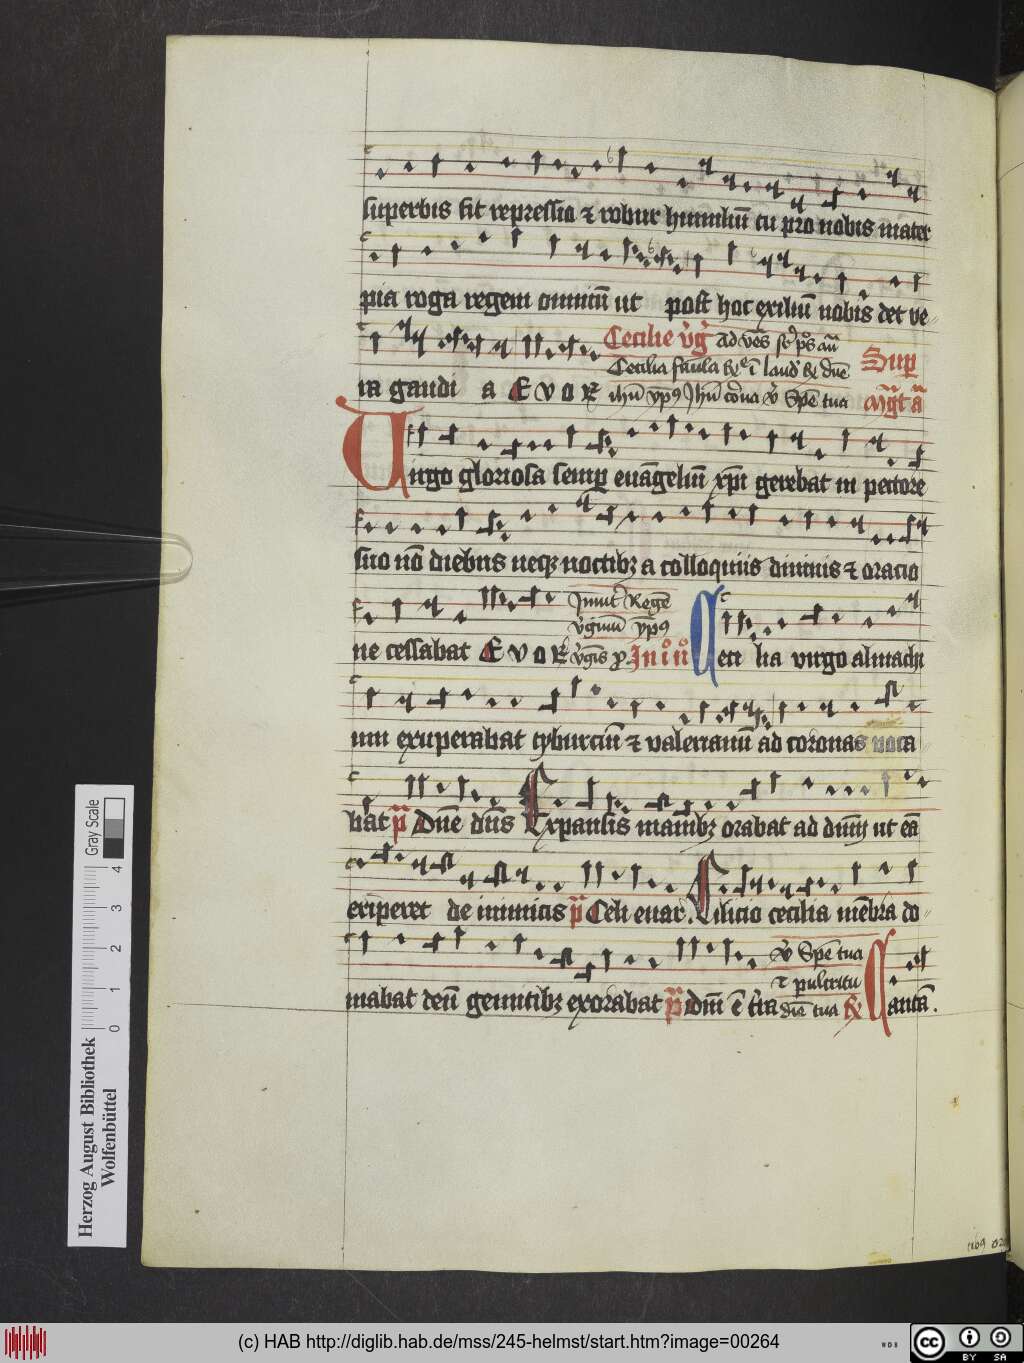 superbis sit repressio ⁊ robur humiliū tu pro nobis mater
pia roga regem omniū ut post hoc exiliū nobis det ve-
ra gaudi a E v o R
Cecilie v̾g̾ ad vēs
Cecilia famula laud dūe
Sup
Virgo gloriosa semꝑ euāgeliū xp̄i gerebat in pectore
suo nō diebus neqꝫ noctibꝫ a colloquiis diuinis ⁊ oracio
ne cessabat E v o R
Inuit Regē
v̾ginū
Ceci lia virgo almachi
um exuperabat tyburciū ⁊ valerianū ad coronas voca
bat p̄ Dn̄e dn̄s Expansis manibꝫ orabat ad dn̄m ut eā
eriperet de inimicis p̄ Celi enar. Cilicio cecilia mēbra do-
mabat deū gemitibꝫ exorabat p̄ dn̄i ē t̾ra
Spē tua
⁊ pulcritu
diē tua
Cantā.
Herzog August Bibliothek
Wolfenbüttel
0 1 2 3 4
Gray Scale
(c) HAB http://diglib.hab.de/mss/245-helmst/start.htm?image=00264
WDB
cc
BY SA